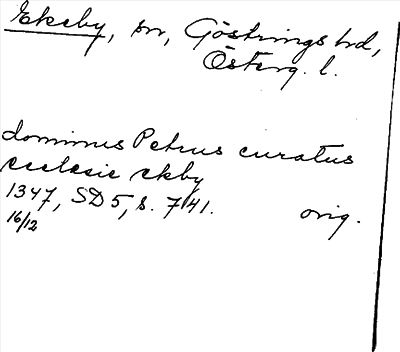 Ekeby, sn, Göstrings hd,
Österg. l.
dominus Petrus curatus
ecclesie ekby
1347, SD 5, s. 741. orig.
16/12